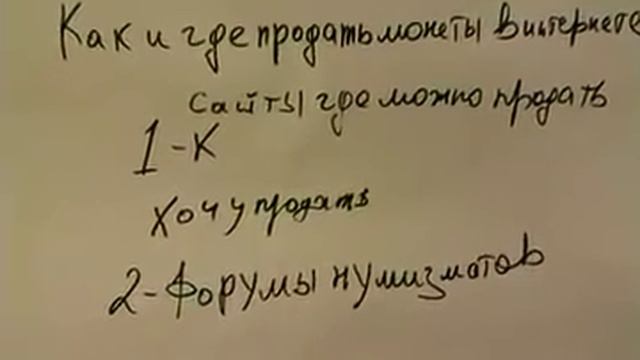 Как и где продать монеты в интернете
сайты где можно продать
1-К
Хочу продать
2-Форумы нумизматов